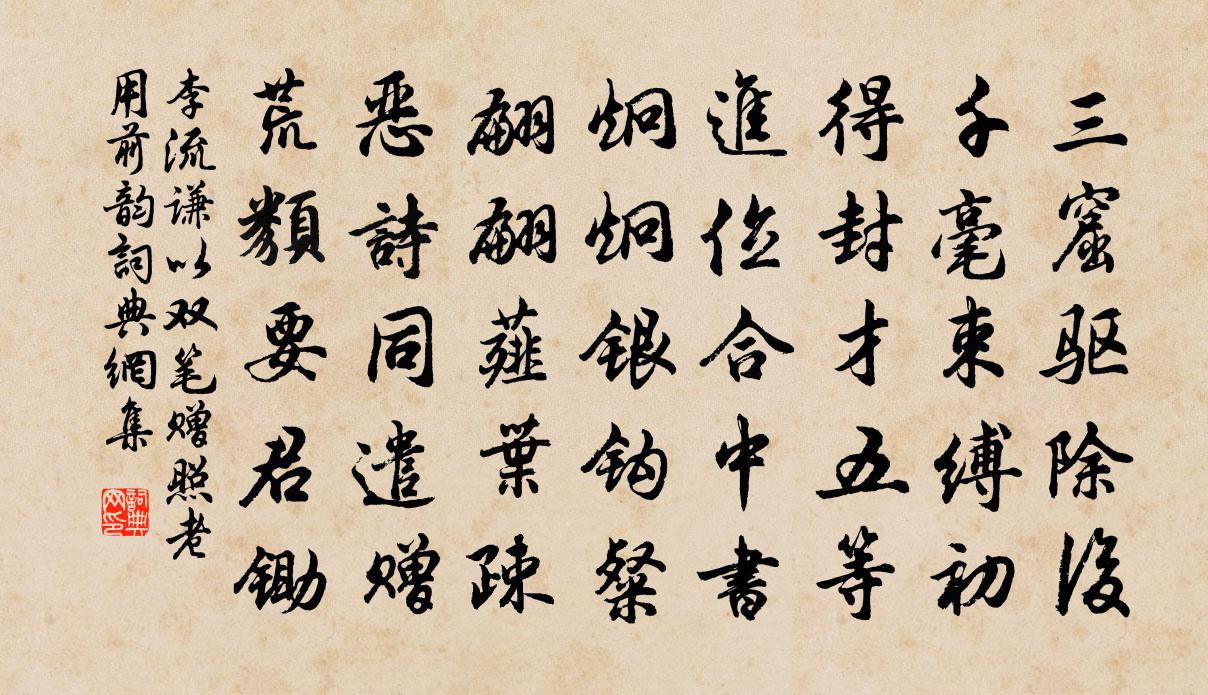 三窟驱除後
千毫束縛初
得封才五等
進位合中書
炯炯銀钩粲
翩翩薤葉疎
恶詩同遣赠
荒類要君锄
李流谦以双笔赠照老
用前韵詞典網集
詞典网印